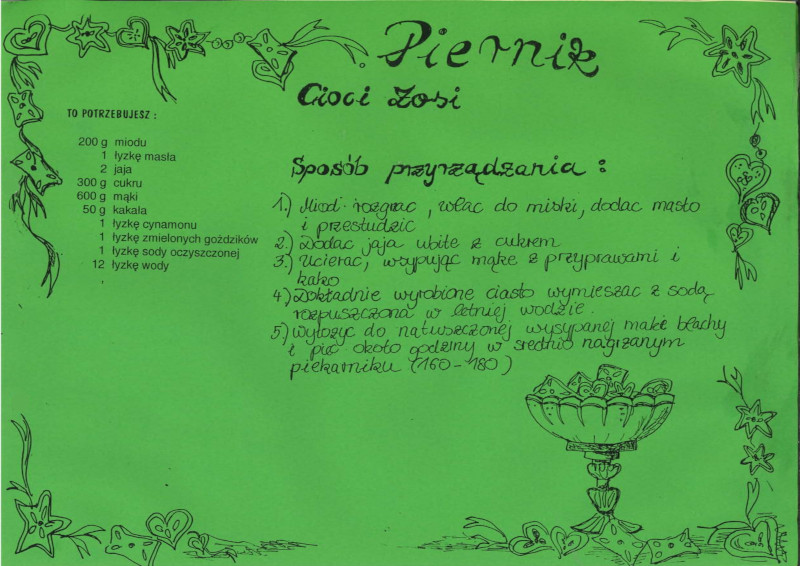 Piernik
Cioci Zosi
TO POTRZEBUJESZ :
200 g miodu
1 łyżkę masła
2 jaja
300 g cukru
600 g mąki
50 g kakała
1 łyżkę cynamonu
1 łyżkę zmielonych gożdzików
1 łyżkę sody oczyszczonej
12 łyżkę wody
Sposób przyrządzania :
1.) Miod rozgrac, wlac do miski, dodac masło
i przestudzic
2.) Dodac jaja ubite z cukrem
3.) Ucierac, wsypując mąke z przyprawami i
kako
4.) Dokładnie wyrobione ciasto wymieszac z sodą
rozpuszczona w letniej wodzie.
5.) Wyłozyc do natłuszczonej wysypanej make blachy
i piec około godziny w srednio nagrzanym
piekarniku (160-180)